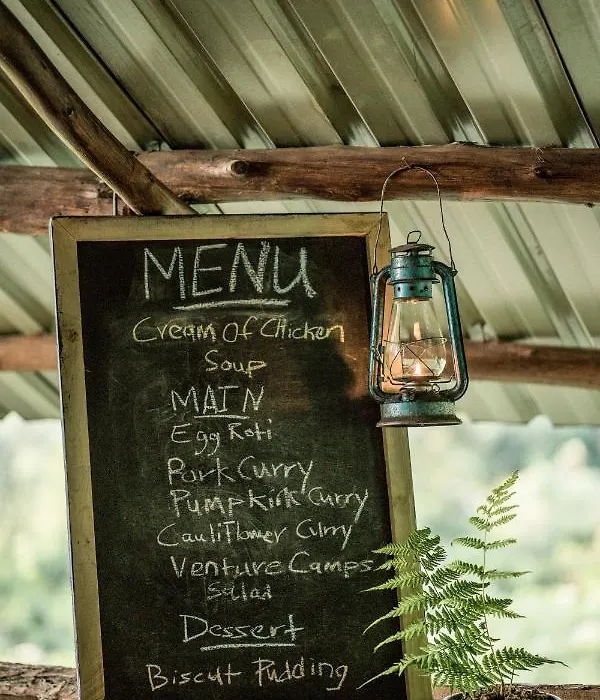 MENU
Cream Of Chicken
Soup
MAIN
Egg Roti
Pork Curry
Pumpkin Curry
Cauliflower Curry
Venture Camps
Salad
Dessert
Biscut Pudding